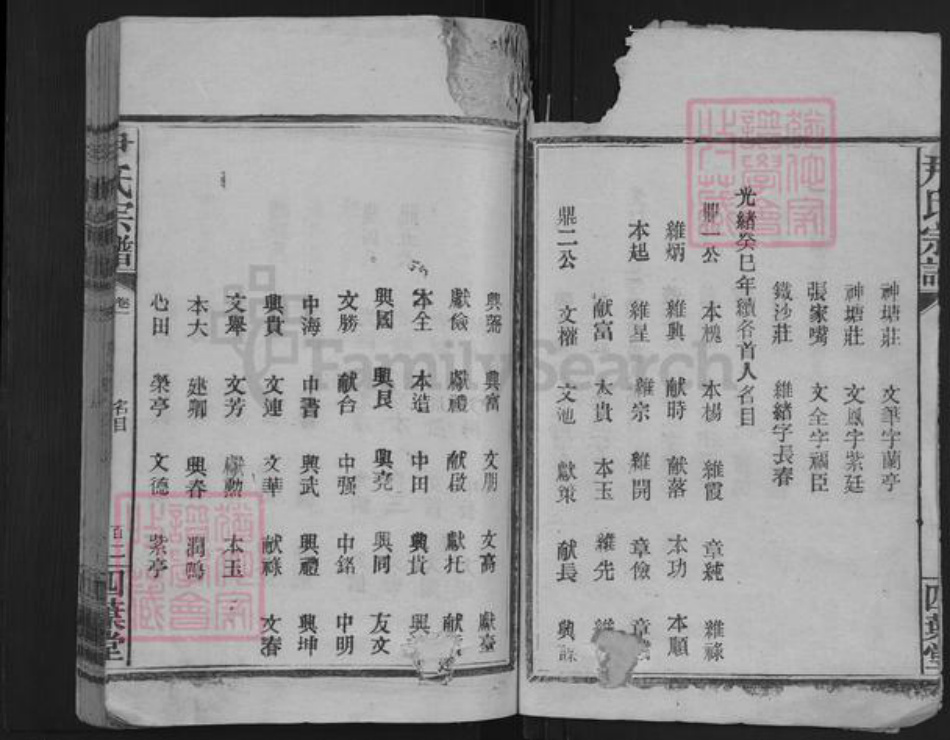 尹氏宗譜
四葉堂
神塘莊 文華字蘭亭
神塘莊 文鳳字紫廷
張家嘴 文全字福臣
鐵沙莊 維緒字長春
光緒癸巳年續各首人名目
鼎一公 本槐 本楊 維霞 章純 維祿
維炳 維興 献時 献落 本功 本順
本起 維星 維宗 維開 章儉 章
献富 太貴 本玉 維先
鼎二公 文權 文池 獻策 献長 興
興 興富 文朋 文高 獻臺
獻儉 獻禮 献啟 獻托 献
本全 本造 中田 興貴 興
興國 興良 興堯 興同 友文
文勝 献台 中强 中銘 中明
中海 中書 興武 興禮 興坤
興貴 文連 文華 献祿 文春
文舉 文芳 獻勲 本玉
本大 建卿 興春 潤鳴
心田 榮亭 文德 紫亭
尹氏宗譜
卷一
名目
百二
四葉堂
FamilySearch